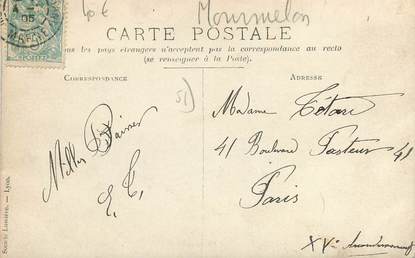 40€ Mourmelon
CARTE POSTALE
Tous les pays étrangers n'acceptent pas la correspondance au recto
(se renseigner à la Poste).
CORRESPONDANCE
ADRESSE
51
Madame Tétard
41 Boulevard Pasteur 41
Paris
XVe Arrondissement
Milles Baisers
E. T.
Société Lumière. — Lyon.
05